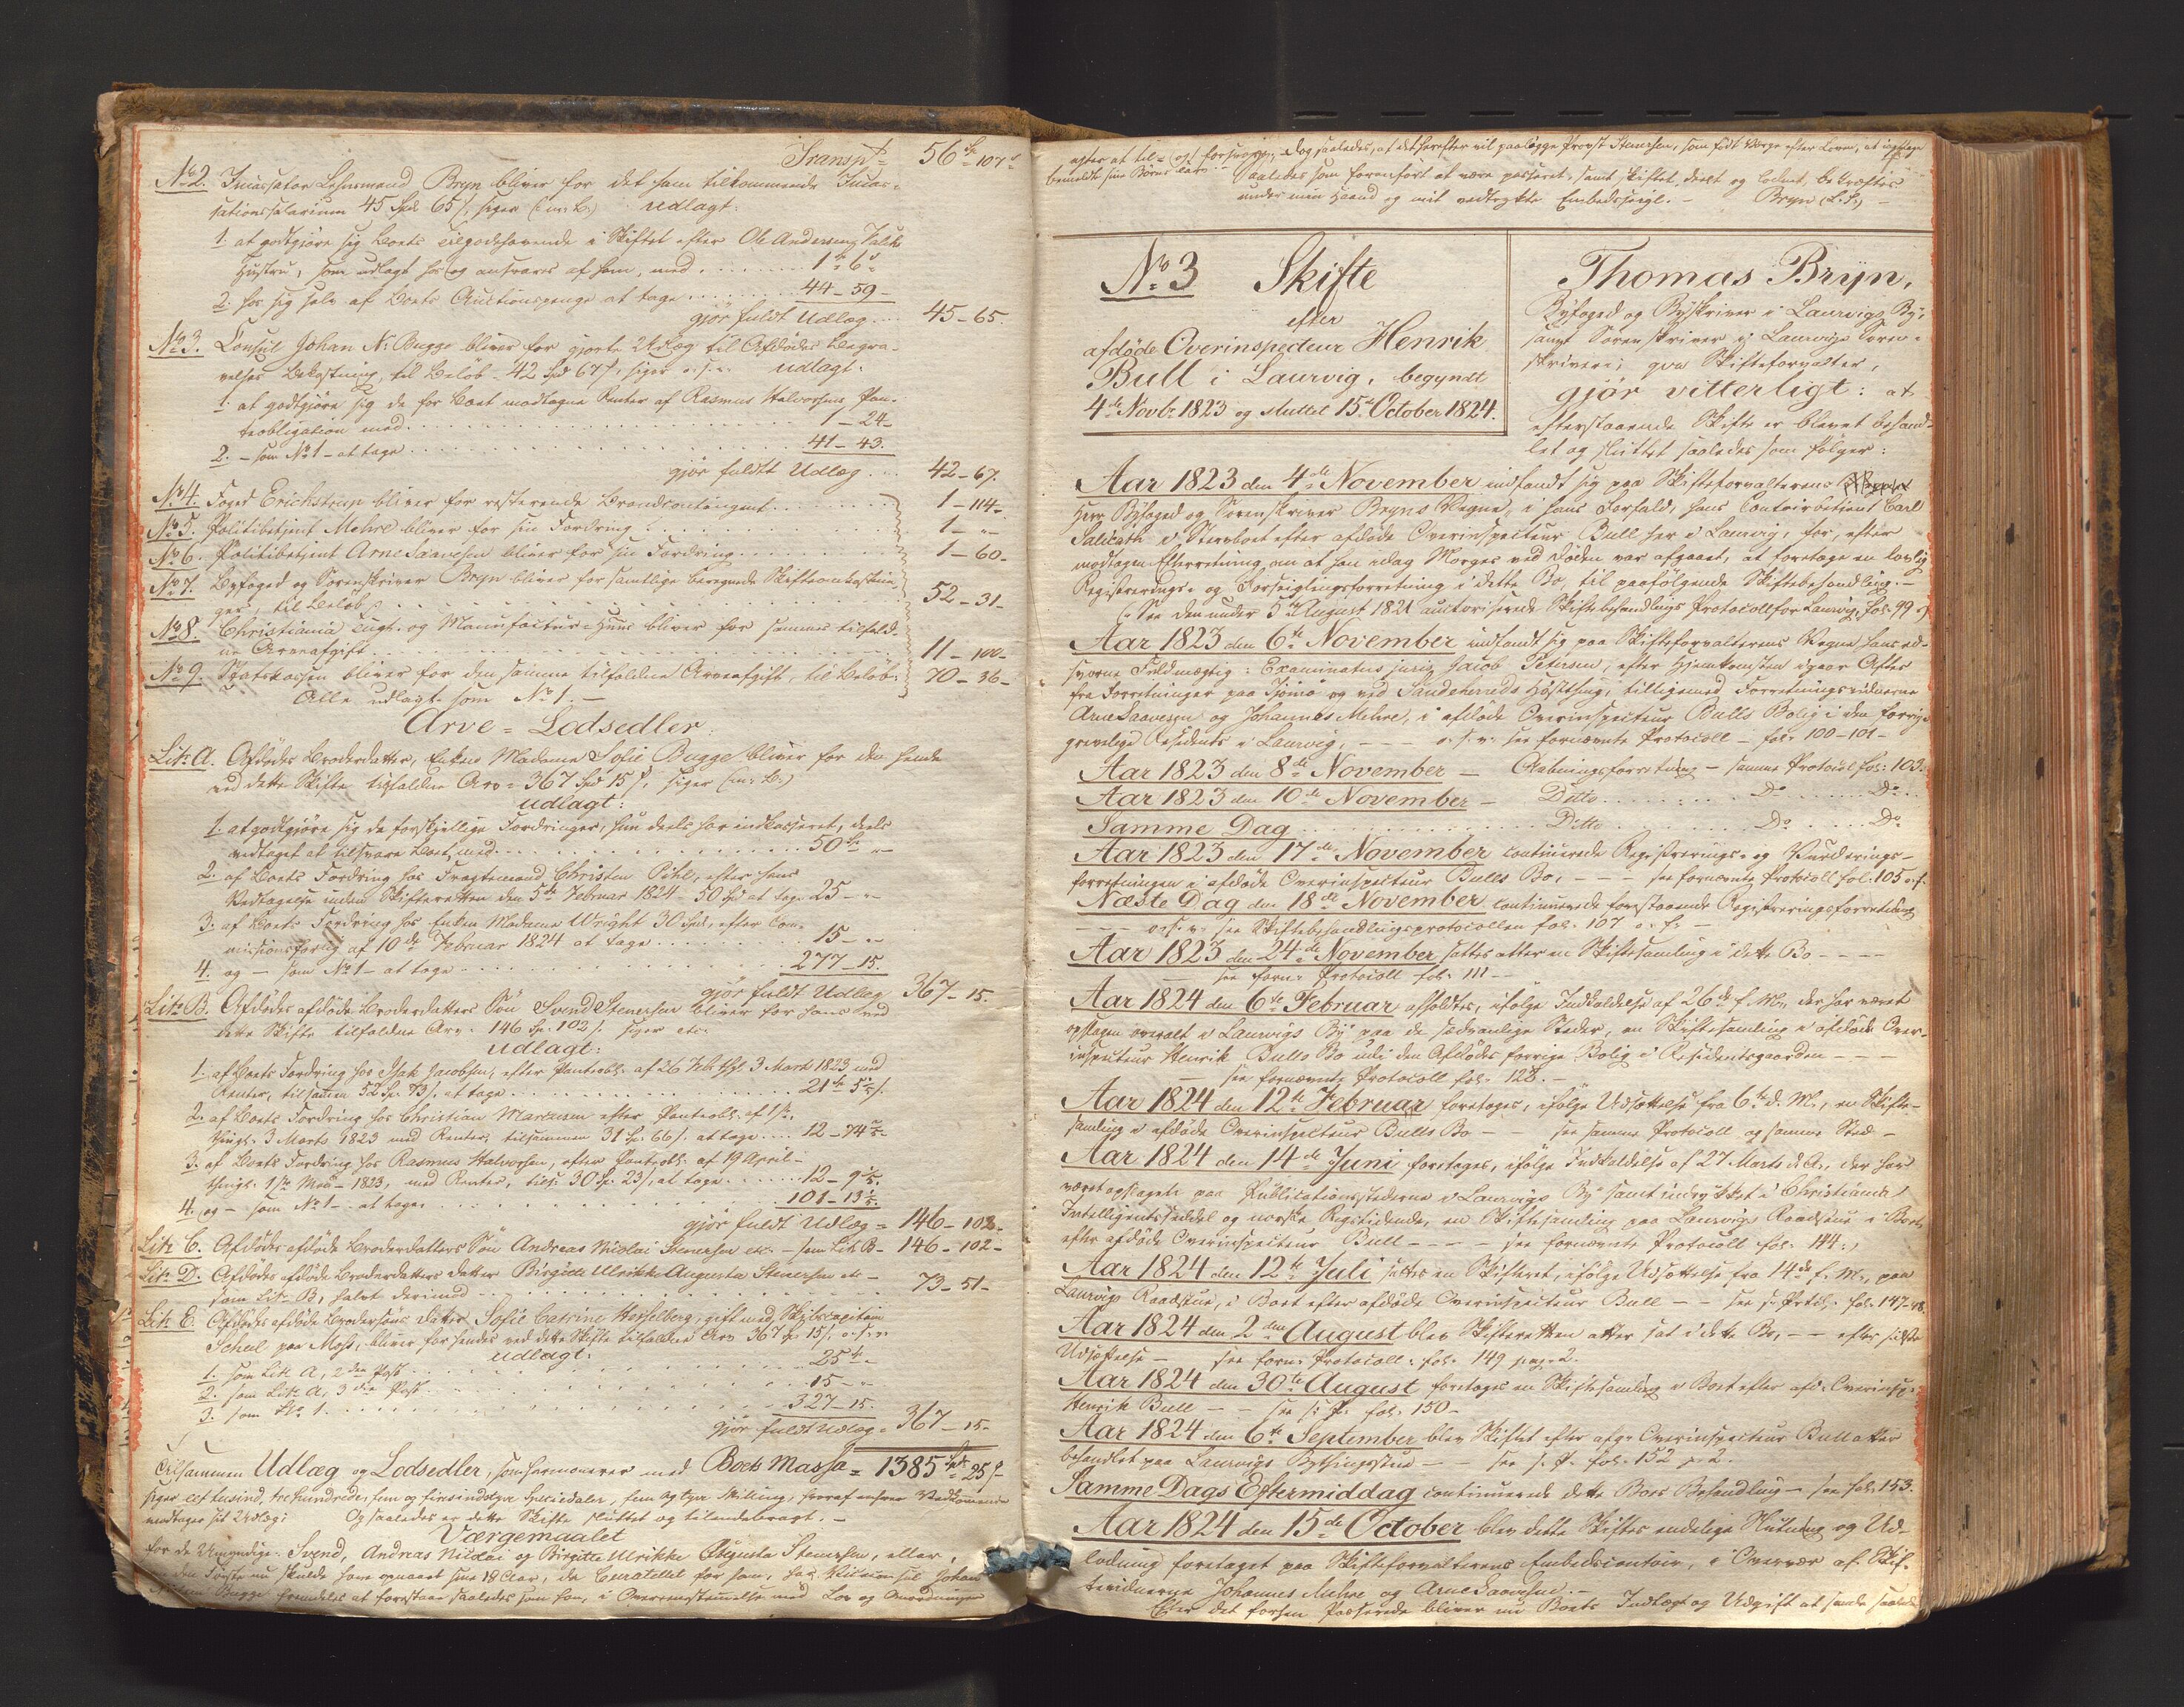 Transpt = 56 Sp 107 s
No 2. Incassator Lehnsmand Bryn bliver for det ham tilkommende Incas-
sationssalarium 45 Spd 65 s, siger (m: B:) udlagt:
1. at godtgjøre sig Boets tilgodehavende i Skiftet efter Ole Andersens
Hustru, som udlagt hos og ansvares af ham, med . . . 1 - 6 -
2. hos sig selv af Boets Auctionspenge at tage . . . 44 - 59 -
gjør fuldt Udlæg . . . 45 - 65.
No 3. Consul Johan N: Bugge bliver for gjorte Udlæg til Afdødes Begra-
velses Bekostning, til Beløb - 42 Spd 67 s, siger o: s: v: udlagt:
1. at godtgjøre sig de for Boet modtagne Renter af Rasmus Halvorsens Pan-
teobligation med . . . 1 - 24 -
2. - som No 1 - at tage . . . 41 - 43.
gjør fuldt Udlæg . . . 42 - 67.
No 4. Foged Erichstrup bliver for resterende Brandcontingent . . . 1 - 114 -
No 5. Politibetjent Mehre bliver for sin Fordring . . . 1 - "-
No 6. Politibetjent Arne Saavesen bliver for sin Fordring . . . 1 - 60 -
No 7. Byfoged og Sorenskriver Bryn bliver for samtlige beregnede Skifteomkostnin-
ger, til Beløb . . . 52 - 31 -
No 8. Christiania Tugt- og Manufactur-Huus bliver for sammes tilfald-
ne Arveafgift . . . 11 - 100 -
No 9. Statskassen bliver for den samme tilfaldne Arveafgift, til Beløb . . 70 - 36 -
Alle udlagt som No 1. -
Arve = Lodsedler.
Litr A. Afdødes Broderdatter, Enken Madame Sofie Bugge bliver for den hende
ved dette Skifte tilfaldne Arv = 367 Spd 15 s, siger (m: B:)
udlagt:
1. at godtgjøre sig de forskjellige Fordringer, hun deels har indkasseret, deels
vedtaget at tilsvare Boet, med . . . 50 Sp "-
2. af Boets Fordring hos Fragtemand Christen Pihl, efter hans
Vedtagelse under Skifteretten den 5te Februar 1824 - 50 Spd at tage 25 - "-
3. af Boets Fordring hos Enken Madame Wright 30 Spd, efter Com-
missionsforlig af 10de Februar 1824 at tage . . . 15 - "-
4. og - som No 1 - at tage . . . 277 - 15.
gjør fuldt Udlæg 367 - 15.
Litr B. Afdødes afdøde Broderdatters Søn Svend Stenersen bliver for hans ved
dette Skifte tilfaldne Arv - 146 Sp: 102 s. siger etc:
udlagt:
1. af Boets Fordring hos Isak Jacobsen, efter Panteobl: af 26 Feb: thgl. 3 Marts 1823 med
Renter, tilsammen 52 Sp: 73 s. at tage . . . 21 Sp 5 s.
2. af Boets Fordring hos Christian Marcussen efter Panteobl: af
thingl: 3 Marts 1823 med Renter, tilsammen 31 Sp: 66 s. at tage . . . 12 - 74
3. af Boets Fordring hos Rasmus Halvorsen, efter Panteobl: af 19 April -
thingl: 1ste Mai - 1823, med Renter, tils: 30 Sp: 23 s, at tage . . . 12 - 9
4. og - som No 1 - at tage . . . 101 - 13
gjør fuldt Udlæg = 146 - 102 -
Litr C. Afdødes afdøde Broderdatters Søn Andreas Nicolai Stenersen etc. - som Litr B - 146 - 102 -
Litr D. Afdødes afdøde Broderdatters Datter Birgitte Ulrikke Augusta Stenersen etc -
som Litr B, halvt derimod . . . 73 - 51 -
Litr E. Afdødes afdøde Brodersøns Datter Sofie Catrine Hesselberg, gift med Skibscapitain
Scheel paa Moss, bliver for hendes ved dette Skifte tilfaldne Arv 367 Sp 15 s. o: s: v:
udlagt:
1. som Litr A, 2den Post . . . 25 Sp -
2. som Litr A, 3die Post . . . 15 - "-
3. som No 1. . . . 327 - 15.
gjør fuldt Udlæg = 367 - 15 -
Tilsammen Udlæg og Lodsedler, som harmonerer med Boets Massa = 1385 Spd 25 s
siger eet tusind, tre hundrede, fem og firesindstyve Speciedaler, fem og tyve Skilling, hvoraf enhver Vedkommende
modtager sit Udlæg: Og saaledes er dette Skifte sluttet og tilendebragt. -
Værgemaalet
for de Umyndige: Svend, Andreas Nicolai og Birgitte Ulrikke Augusta Stenersen, eller,
om den Første nu skulde have opnaaet sine 18 Aar, da Curatellet for ham, har Vice Consul Johan
Nilsen Bugge fremdeles at forestaae saaledes som han, i Overensstemmelse med Lov og Anordninger
agter at til- og forsvare, dog saaledes, at det herefter vil paalægge Provst Stenersen, som født Værge efter Loven, at iagttage
bemeldt sine Børns Tarv. - Saaledes som foranført at være passeret, samt Skiftet, deelt og loddet, bekræftes
under min Haand og mit vedtrykte Embedsseigl. - Bryn (L. S.) -
No 3 Skifte
efter
afdøde Overinspecteur Henrik
Bull i Laurvig, begyndt
4de Novbr 1823 og sluttet 15de October 1824.
Thomas Bryn,
Byfoged og Byskriver i Laurvigs By,
samt Sorenskriver i Laurvigs Soren-
skriveri, qva Skifteforvalter,
gjør vitterligt: at
efterstaaende Skifte er blevet behand-
let og sluttet saaledes som følger:
Aar 1823 den 4de November indfandt sig paa Skifteforvalterens
Herr Byfoged og Sorenskriver Bryns Vegne, i hans Forfald, hans Contoirbetient Carl
Salicath i Sterboet efter afdøde Overinspecteur Bull her i Laurvig, for, efter
modtagen Efterretning om at han idag Morges ved Døden var afgaaet, at foretage en lovlig
Registrerings- og Forseiglingsforretning i dette Bo, til paafølgende Skiftebehandling. -
(: See den under 5 August 1821 auctoriserede Skiftebehandlings Protocoll for Laurvig, fol: 99 :)
Aar 1823 den 6te November indfandt sig paa Skifteforvalterens Vegne hans ed-
svorne Fuldmægtig: Examinatus juris Jacob Petersen, efter Hjemkomsten igaar Aftes
fra Forretninger paa Tjømø og ved Sandeherreds Høstthing, tilligemed Forretningsvidnerne
Arne Saavesen og Johannes Mehre, i afdøde Overinspecteur Bulls Bolig i den forrige
grevelige Residents i Laurvig, - - - o. s. v. see fornævnte Protocoll - fol: 100 - 101 -
Aar 1823 den 8de November - Aabningsforretning - samme Protocol fol: 103.
Aar 1823 den 10de November - Ditto . . . Do . . . Do . .
Samme Dag . . . Ditto . . . Do . . . Do
Aar 1823 den 17de November continuerede Registrerings- og Vurderings-
forretningen i afdøde Overinspecteur Bulls Bo, - - - see fornævnte Protocoll fol: 105 o. f.
Næste Dag den 18de November continuerede forestaaende Registreringsforretning
- - - o. s. v. see Skiftebehandlingsprotocollen fol: 107 o. f. -
Aar 1823 den 24de November sattes atter en Skiftesamling i dette Bo - - - -
see forn: Protocoll fol: 111 - -
Aar 1824 den 6te Februar afholdtes, ifølge Indkaldelse af 26de f. M., der har været
opslagen overalt i Laurvigs By paa de sædvanlige Steder, en Skiftesamling i afdøde Over-
inspecteur Henrik Bulls Bo udi den Afdødes forrige Bolig i Residentsgaarden - - -
- see fornævnte Protocoll fol: 128. -
Aar 1824 den 12te Februar foretoges, ifølge Udsættelse fra 6te d. M., en Skifte-
samling i afdøde Overinspecteur Bulls Bo - see samme Protocoll og samme Sted -
Aar 1824 den 14de Juni foretoges, ifølge Indkaldelse af 27 Marts d. A., der har
været opslaget paa Publicationsstederne i Laurvigs By samt indrykket i Christiania
Intelligentsseddel og norske Rigstidende, en Skiftesamling paa Laurvigs Raadstue i Boet
efter afdøde Overinspecteur Bull - - - - see fornævnte Protocoll fol: 144:,
Aar 1824 den 12te Juli sattes en Skifteret, ifølge Udsættelse fra 14de f. M., paa
Laurvigs Raadstue, i Boet efter afdøde Overinspecteur Bull - - see s. Protcl. fol: 147-48.
Aar 1824 den 2den August blev Skifteretten atter sat i dette Bo, - - efter sidste
Udsættelse - see forn: Protocoll: fol: 149 pag: 2.
Aar 1824 den 30te August foretoges en Skiftesamling i Boet efter afd: Overinsp:
Henrik Bull - - see s: P. fol: 150 -
Aar 1824 den 6te September blev Skiftet efter afg: Overinspecteur Bull atter
behandlet paa Laurvigs Bythingsstue - - see s. P. fol: 152 p. 2.
Samme Dags Eftermiddag continuerede dette Boes Behandling - see fol: 153.
Aar 1824 den 15de October blev dette Skiftes endelige Slutning og Ud-
lodning foretaget paa Skifteforvalterens Embedscontoir, i Overvær af Skif-
tevidnerne Johannes Mehre og Arne Saavesen. -
Efter det forhen Passerede bliver nu Boets Indtægt og Udgift at sende saaledes